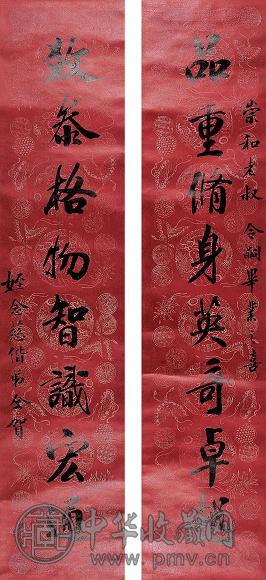 崇和老叔 令嗣畢業之喜
品重脩身英奇卓
格物智識宏通
姪念慈偕弟仝賀
中华收藏网
www.pmv.cn